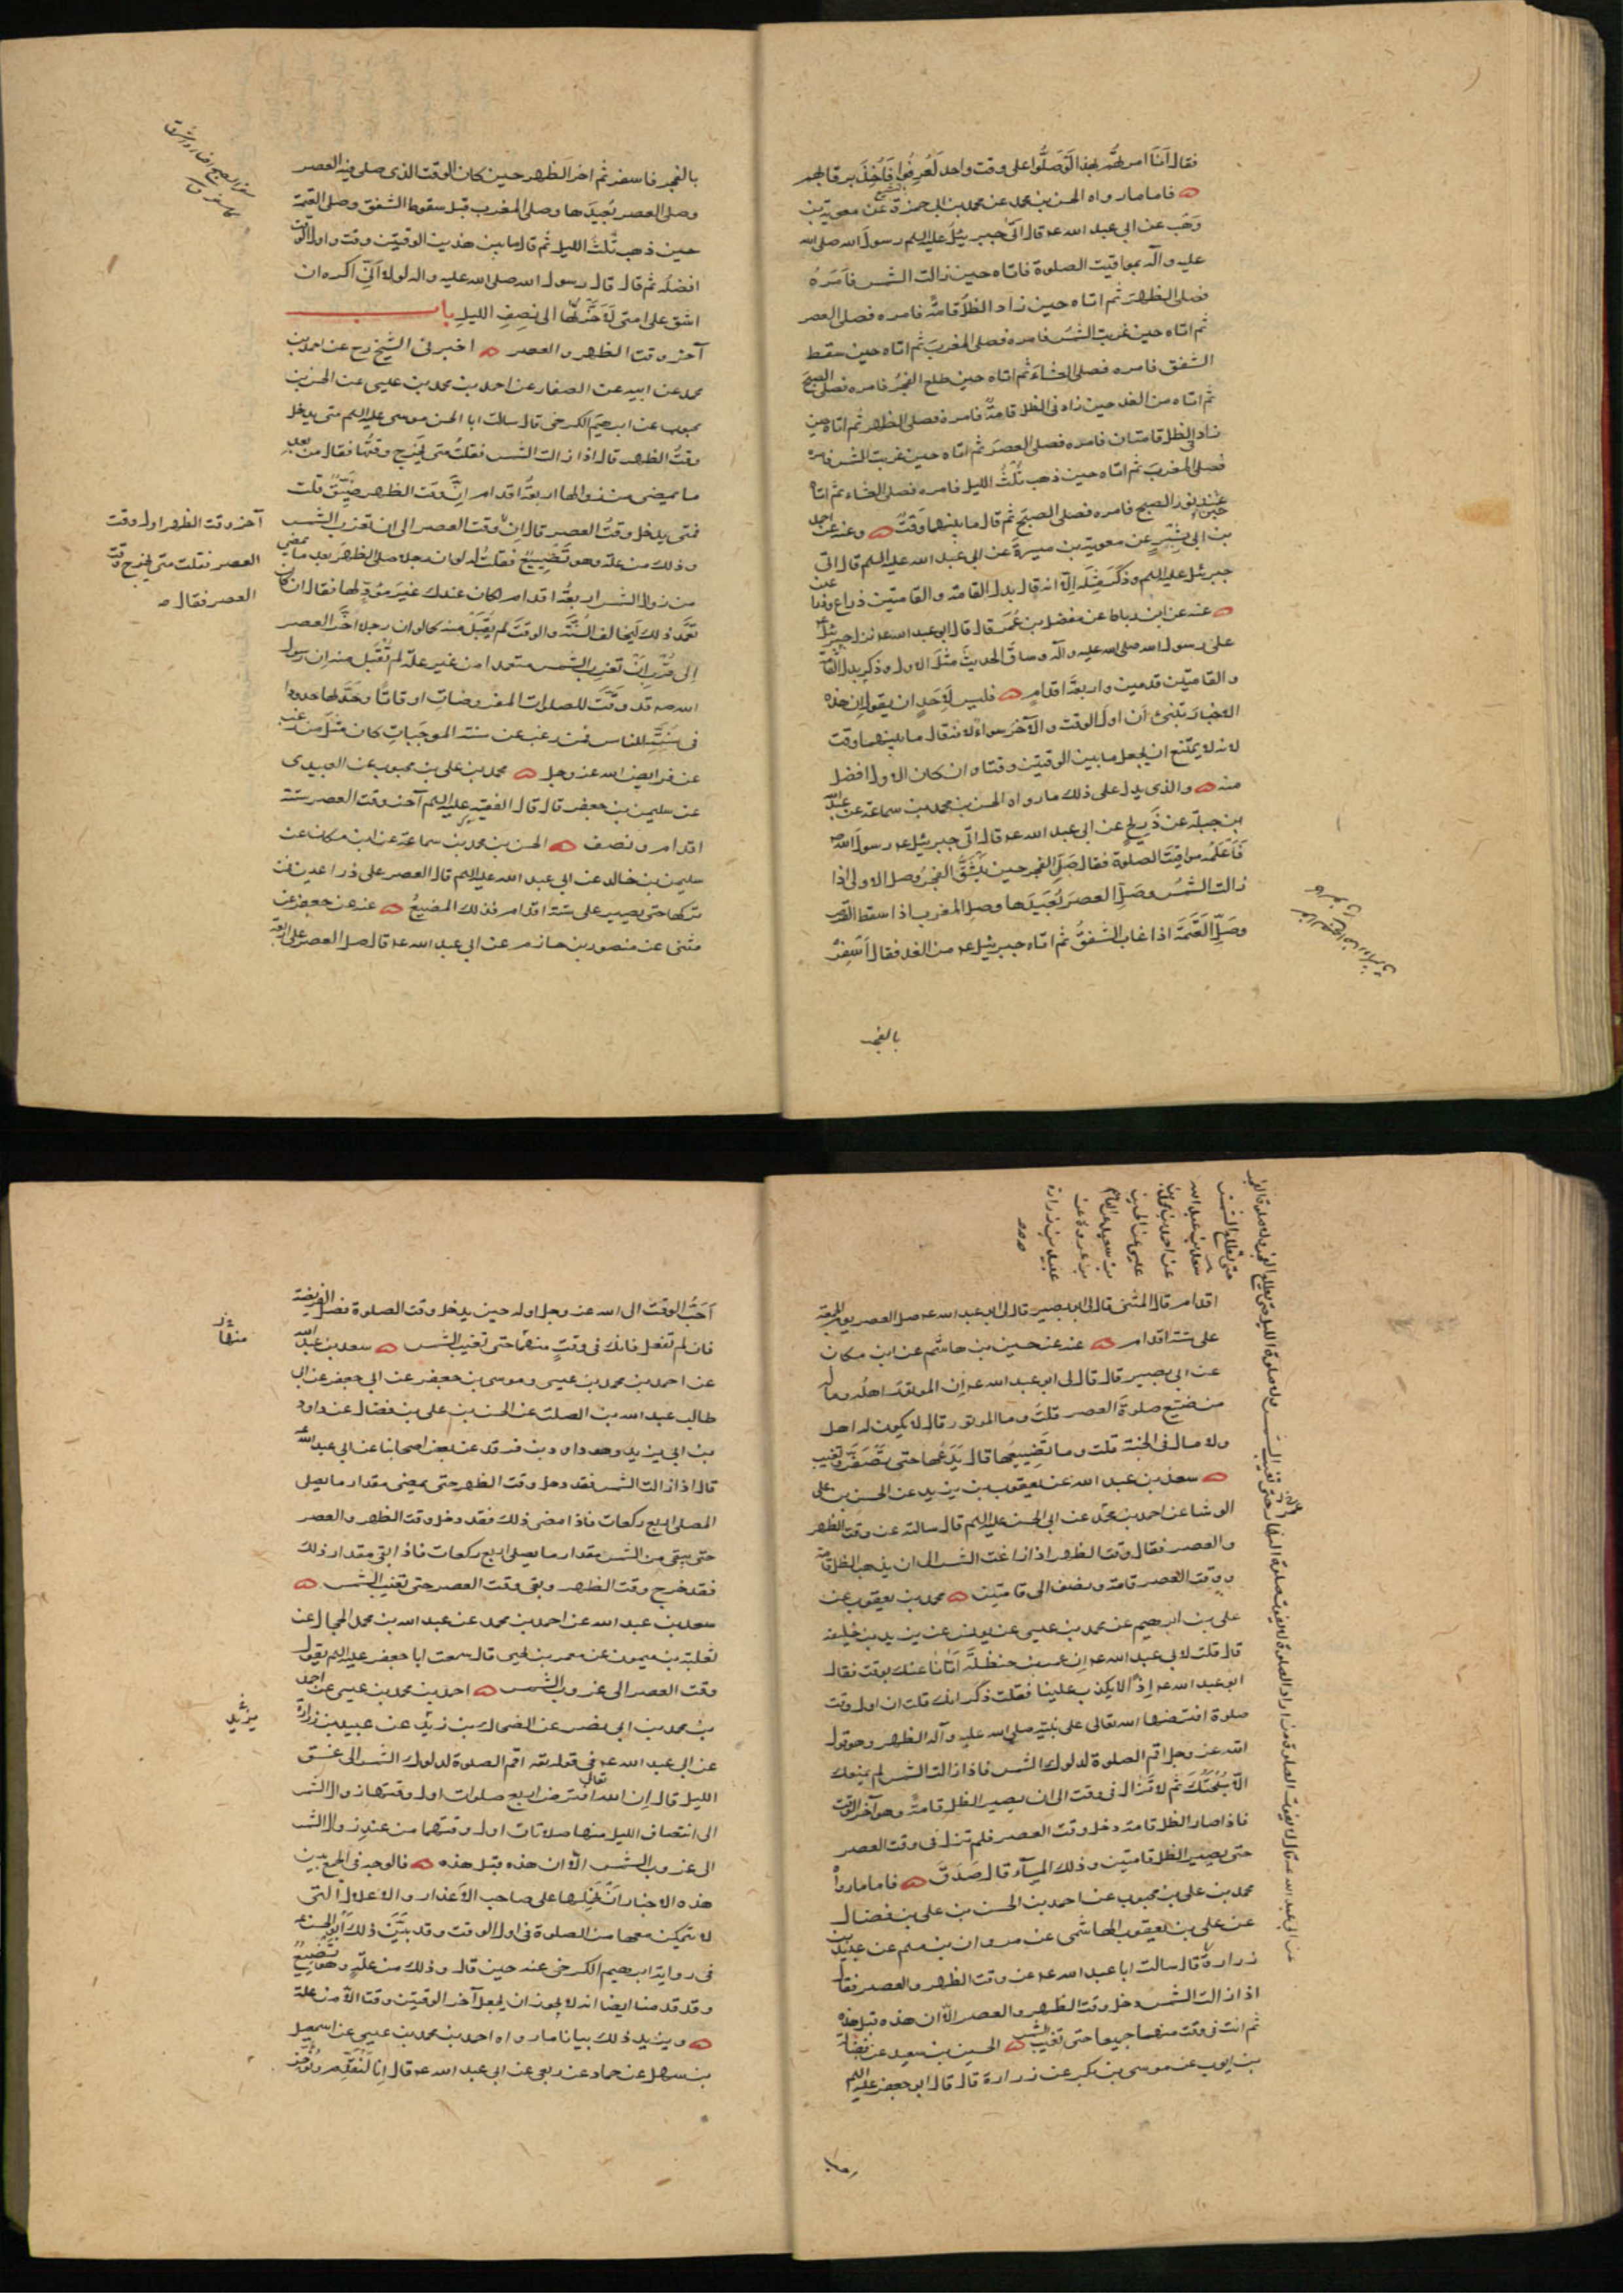 فقال انا امرتهم بهذا لو صلوا على وقت واحد لعرفوا فاخذ برقابهم
فاما ما رواه الحسن بن محمد عن محمد بن ابي حمزة عن معوية بن
وهب عن ابي عبد الله ع قال اتى جبرئيل عليه السلم رسول الله صلى الله
عليه وآله بمواقيت الصلوة فاتاه حين زالت الشمس فامره
فصلى الظهر ثم اتاه حين زاد الظل قامة فامره فصلى العصر
ثم اتاه حين غربت الشمس فامره فصلى المغرب ثم اتاه حين سقط
الشفق فامره فصلى العشاء ثم اتاه حين طلع الفجر فامره فصلى الصبح
ثم اتاه من الغد حين زاد في الظل قامة فامره فصلى الظهر ثم اتاه حين
زاد في الظل قامتان فامره فصلى العصر ثم اتاه حين غربت الشمس فامره
فصلى المغرب ثم اتاه حين ذهب ثلث الليل فامره فصلى العشاء ثم اتاه
حين نور الصبح فامره فصلى الصبح ثم قال ما بينهما وقت وعنه عن احمد
بن ابي بشير عن معوية بن ميسرة عن ابي عبد الله عليه السلم قال اتى
جبرئيل عليه السلم وذكر مثله الا انه قال بدل القامة والقامتين ذراع وذراعين
عنه عن ابن رباط عن مفضل بن عمر قال قال ابو عبد الله ع نزل جبرئيل
على رسول الله صلى الله عليه وآله وساق الحديث مثل الاول وذكر بدل القامة
والقامتين قدمين واربعة اقدام فليس لاحد ان يقول ان هذه
الاخبار تنبئ ان اول الوقت والآخر سواء لانه قال ما بينهما وقت
لانه لا يمتنع ان يجعل ما بين الوقتين وقتا وان كان الاول افضل
منه والذي يدل على ذلك ما رواه الحسن بن محمد بن سماعة عن عبد الله
بن جبلة عن ذريح عن ابي عبد الله ع قال اتى جبرئيل ع رسول الله ص
فاعلمه مواقيت الصلوة فقال صل الفجر حين ينشق الفجر وصل الاولى اذا
زالت الشمس وصل العصر بعيدها وصل المغرب اذا سقط القرص
وصل العتمة اذا غاب الشفق ثم اتاه جبرئيل ع من الغد فقال اسفر
بالفجر
بالفجر فاسفر ثم اخر الظهر حين كان الوقت الذي صلى فيه العصر
وصلى العصر بعيدها وصلى المغرب قبل سقوط الشفق وصلى العتمة
حين ذهب ثلث الليل ثم قال ما بين هذين الوقتين وقت واول الوقت
افضله ثم قال قال رسول الله صلى الله عليه واله لولا اني اكره ان
اشق على امتي لاخرتها الى نصف الليل باب
آخر وقت الظهر والعصر اخبرني الشيخ رح عن احمد بن
محمد عن ابيه عن الصفار عن احمد بن محمد بن عيسى عن الحسن بن
محبوب عن ابرهيم الكرخي قال سالت ابا الحسن موسى عليه السلم متى يدخل
وقت الظهر قال اذا زالت الشمس فقلت متى يخرج وقتها فقال من بعد
ما يمضي من زوالها اربعة اقدام ان وقت الظهر ضيق قلت
فمتى يدخل وقت العصر قال ان وقت العصر الى ان تغرب الشمس
آخر وقت الظهر اول وقت
العصر فقلت متى يخرج وقت
العصر فقال
وذلك من علة وهو تضييع فقلت له لو ان رجلا صلى الظهر بعد ما يمضي
من زوال الشمس اربعة اقدام اكان عندك غير مؤد لها فقال ان كان
تعمد ذلك ليخالف السنة والوقت لم يقبل منه كما لو ان رجلا اخر العصر
الى قرب ان تغرب الشمس متعمدا من غير علة لم تقبل منه ان رسول
الله ص قد وقت للصلوات المفروضات اوقاتا وحد لها حدودا
في سنته للناس فمن رغب عن سنة من سننه الموجبات كان مثل من رغب
عن فرايض الله عز وجل محمد بن علي بن محبوب عن العبيدي
عن سليمن بن جعفر قال قال الفقيه عليه السلم آخر وقت العصر ستة
اقدام ونصف الحسن بن محمد بن سماعة عن ابن مسكان عن
سليمن بن خالد عن ابي عبد الله عليه السلم قال العصر على ذراعين فمن
تركها حتى يصير على ستة اقدام فذلك المضيع عنه عن جعفر عن
مثنى عن منصور بن حازم عن ابي عبد الله ع قال صل العصر على اربعة
اقدام قال المثنى قال لي ابو بصير قال لي ابو عبد الله ع صل العصر يوم الجمعة
على ستة اقدام عنه عن حسين بن هاشم عن ابن مسكان
عن ابي بصير قال قال لي ابو عبد الله ع ان الموتور اهله وماله
من ضيع صلوة العصر قلت وما الموتور قال لا يكون له اهل
ولا مال في الجنة قلت وما تضييعها قال يدعها حتى تصفر وتغيب
سعد بن عبد الله عن يعقوب بن يزيد عن الحسن بن علي
الوشا عن احمد بن محمد عن ابي الحسن عليه السلم قال سالته عن وقت الظهر
والعصر فقال وقت الظهر اذا زاغت الشمس الى ان يذهب الظل قامة
ووقت العصر قامة ونصف الى قامتين محمد بن يعقوب عن
علي بن ابرهيم عن محمد بن عيسى عن يونس عن يزيد بن خليفة
قال قلت لابي عبد الله ع ان عمر بن حنظلة اتانا عنك بوقت فقال
ابو عبد الله ع اذا لا يكذب علينا فقلت ذكر انك قلت ان اول وقت
صلوة افترضها الله تعالى على نبيه صلى الله عليه وآله الظهر وهو قول
الله عز وجل اقم الصلوة لدلوك الشمس فاذا زالت الشمس لم يمنعك
الا سبحتك ثم لا تزال في وقت الى ان يصير الظل قامة وهو آخر الوقت
فاذا صار الظل قامة دخل وقت العصر فلم تزل في وقت العصر
حتى يصير الظل قامتين وذلك المساء قال صدق فاما ما رواه
محمد بن علي بن محبوب عن احمد بن الحسن بن علي بن فضال
عن علي بن يعقوب الهاشمي عن مروان بن مسلم عن عبيد بن
زرارة قال سالت ابا عبد الله ع عن وقت الظهر والعصر فقال
اذا زالت الشمس دخل وقت الظهر والعصر الا ان هذه قبل هذه
ثم انت في وقت منهما جميعا حتى تغيب الشمس الحسين بن سعيد عن فضالة
بن ايوب عن موسى بن بكر عن زرارة قال قال ابو جعفر عليه السلم
حتى تطلع الشمس
سعد بن عبد الله
عن احمد بن محمد بن
عيسى عن الحسين
بن سعيد عن القاسم
بن عروة عن
عبيد بن زرارة
احب الوقت الى الله عز وجل اوله حين يدخل وقت الصلوة فصل الفريضة
فان لم تفعل فانك في وقت منهما حتى تغيب الشمس سعد بن عبد الله
منها
عن احمد بن محمد بن عيسى وموسى بن جعفر عن ابي جعفر عن ابي
طالب عبد الله بن الصلت عن الحسن بن علي بن فضال عن داود
بن ابي يزيد وهو داود بن فرقد عن بعض اصحابنا عن ابي عبد الله ع
قال اذا زالت الشمس فقد دخل وقت الظهر حتى يمضي مقدار ما يصلي
المصلي اربع ركعات فاذا مضى ذلك فقد دخل وقت الظهر والعصر
حتى يبقى من الشمس مقدار ما يصلي اربع ركعات فاذا بقي مقدار ذلك
فقد خرج وقت الظهر وبقي وقت العصر حتى تغيب الشمس
سعد بن عبد الله عن احمد بن محمد عن عبد الله بن محمد الحجال عن
ثعلبة بن ميمون عن معمر بن يحيى قال سمعت ابا جعفر عليه السلم يقول
وقت العصر الى غروب الشمس احمد بن محمد بن عيسى عن احمد
بن محمد بن ابي نصر عن الضحاك بن زيد عن عبيد بن زرارة
يزيد
عن ابي عبد الله ع في قوله تعالى اقم الصلوة لدلوك الشمس الى غسق
الليل قال ان الله تعالى افترض اربع صلوات اول وقتها زوال الشمس
الى انتصاف الليل منها صلاتان اول وقتهما من عند زوال الشمس
الى غروب الشمس الا ان هذه قبل هذه فالوجه في الجمع بين
هذه الاخبار ان نحملها على صاحب الاعذار والاعلال التي
لا يتمكن معها من الصلوة في اول الوقت وقد بين ذلك ابو الحسن ع
في رواية ابرهيم الكرخي عنه حين قال وذلك من علة وهو تضييع
وقد قدمنا ايضا انه لا يجوز ان يجعل آخر الوقتين وقتا الا من علة
ويزيد ذلك بيانا ما رواه احمد بن محمد بن عيسى عن اسمعيل
بن سهل عن حماد عن ربعي عن ابي عبد الله ع قال انا لنقدم ونؤخر